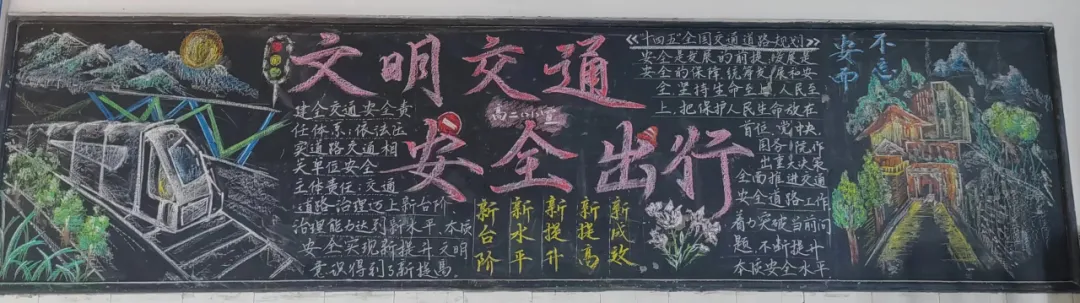 文明交通
安全出行
建全交通安全责
任体系,依法压
实道路交通相
关单位安全
主体责任;交通
道路治理迈上新台阶
治理能力达到新水平.本质
安全实现新提升.文明
意识得到了新提高.
新台阶
新水平
新提升
新提高
新成效
《“十四五”全国交通道路规划》
安全是发展的前提,发展是
安全的保障,统筹发展和安
全,坚持生命至上,人民至
上,把保护人民生命放在
首位,党中央.
国务院作
出重大决策
全面推进交通
安全道路工作
着力突破当前问
题,不断提升
本质安全水平.
安而
不忘